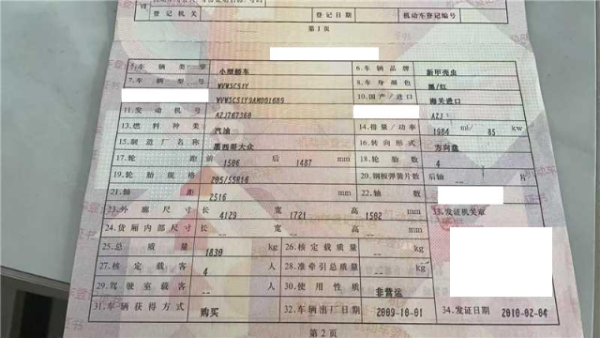 登记机关 登记日期 机动车登记编号
第1页
5.车辆类型 小型轿车 6.车辆品牌 新甲壳虫
7.车辆型号 WVWSCS1Y 8.车身颜色 黑/红
10.国产/进口 海关进口
11.发动机号 AZJ
13.燃料种类 汽油 14.排量/功率 1984 ml/ 85 kw
15.制造厂名称 墨西哥大众 16.转向形式 方向盘
17.轮距 前 1506 后 1487 mm 18.轮胎数 4
19.轮胎规格 205/55R16 20.钢板弹簧片数 后轴 --
21.轴距 2516 mm 22.轴数
23.外廓尺寸 长 4129 宽 1721 高 1502 mm 33.发证机关章
24.货厢内部尺寸 长 -- 宽 -- 高 -- mm
25.总质量 1630 kg 26.核定载质量 -- kg
27.核定载客 4 人 28.准牵引总质量 -- kg
29.驾驶室载客 -- 人 30.使用性质 非营运
31.车辆获得方式 购买 32.车辆出厂日期 2009-10-01 34.发证日期 2010-02-04
第2页